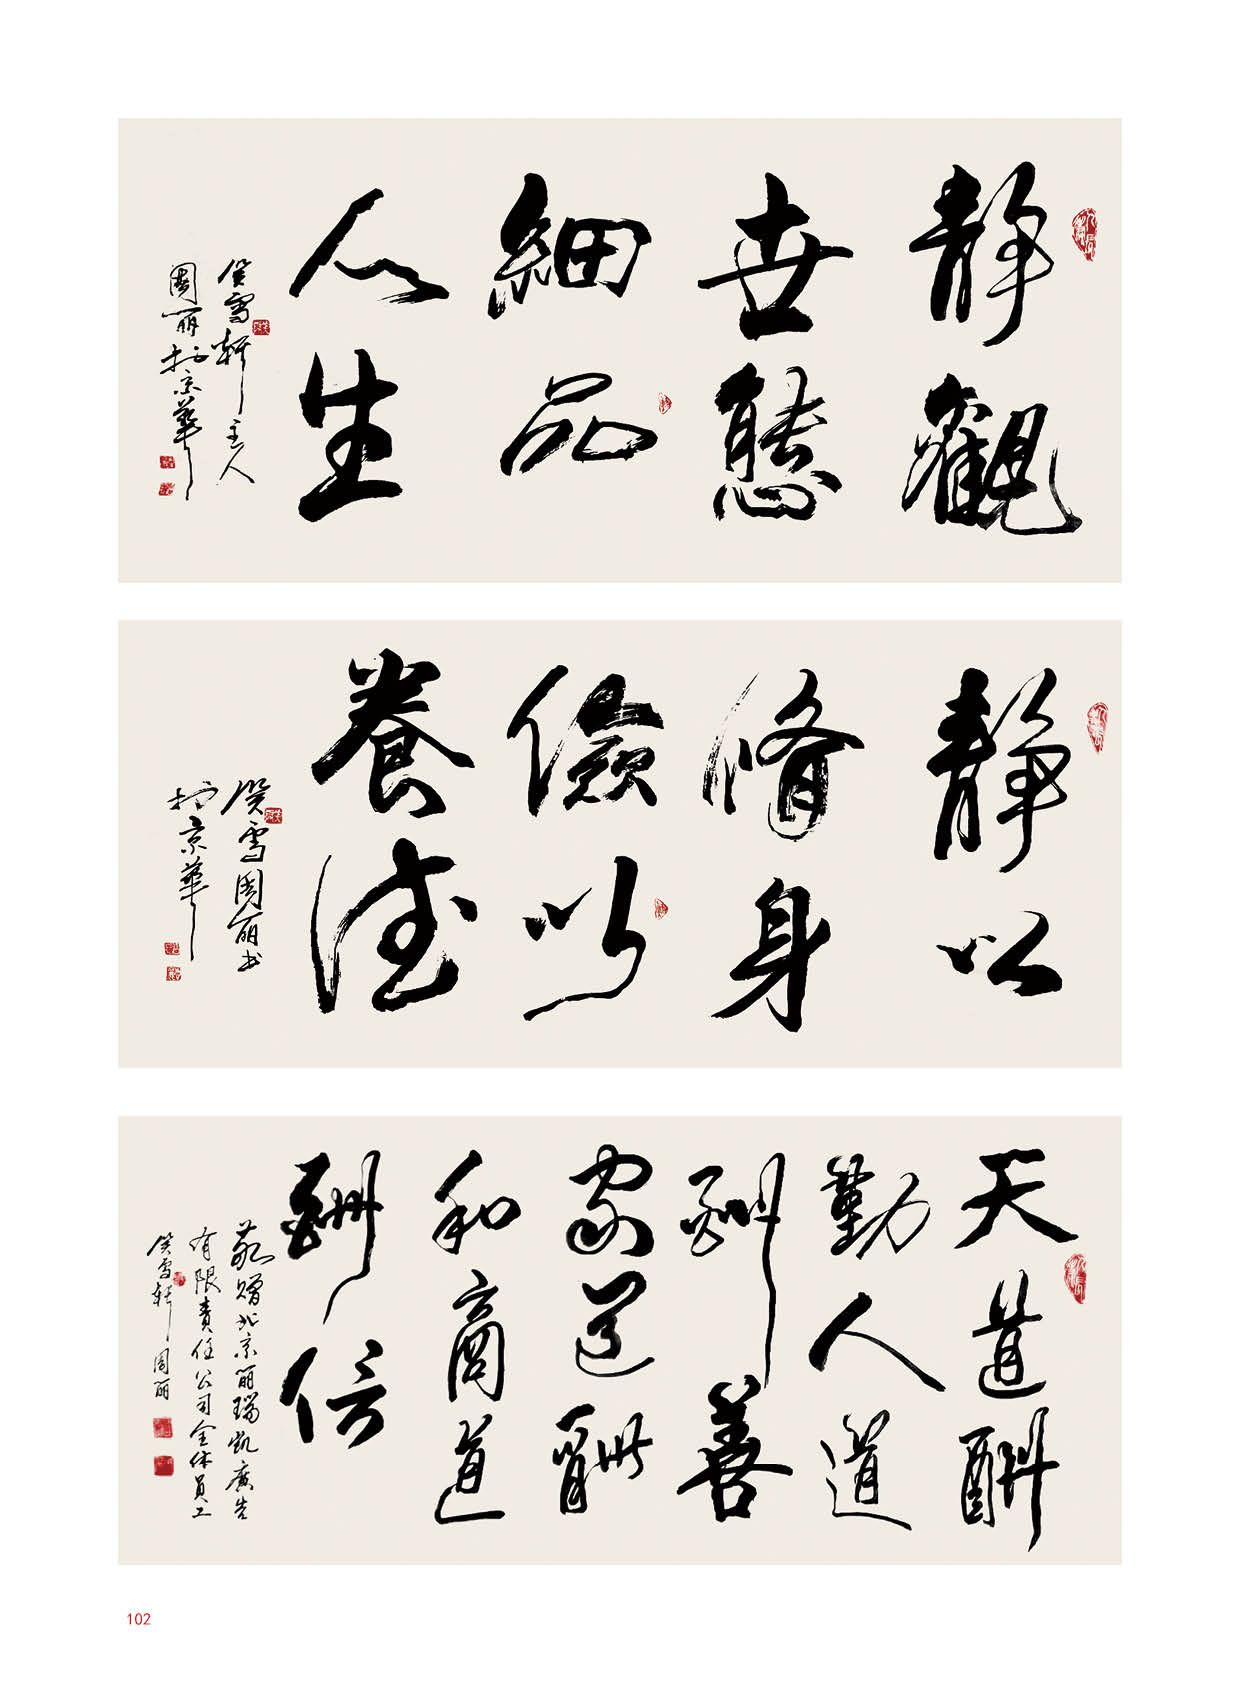 静觀
世態
細品
人生
雪軒主人
周丽於京華
静以
脩身
儉以
養德
雪周丽书
於京華
天道酬
勤人道
酬善
家道酬
和商道
酬信
敬赠北京丽瑞凯廣告
有限责任公司全体员工
雪轩周丽
102